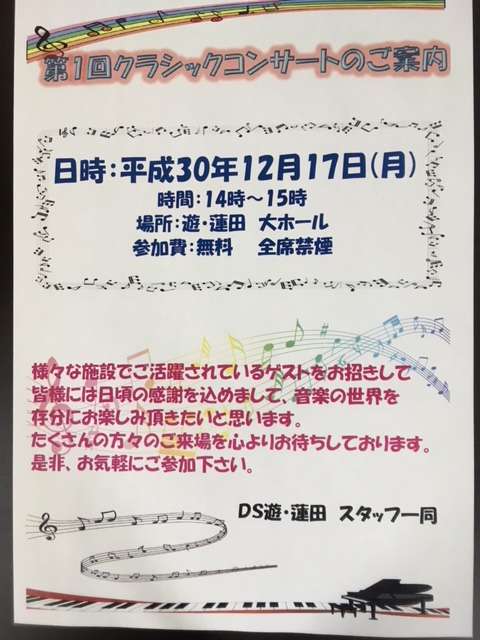 第1回クラシックコンサートのご案内
日時:平成30年12月17日(月)
時間:14時～15時
場所:遊・蓮田 大ホール
参加費:無料 全席禁煙
様々な施設でご活躍されているゲストをお招きして
皆様には日頃の感謝を込めまして、音楽の世界を
存分にお楽しみ頂きたいと思います。
たくさんの方々のご来場を心よりお待ちしております。
是非、お気軽にご参加下さい。
DS遊・蓮田 スタッフ一同